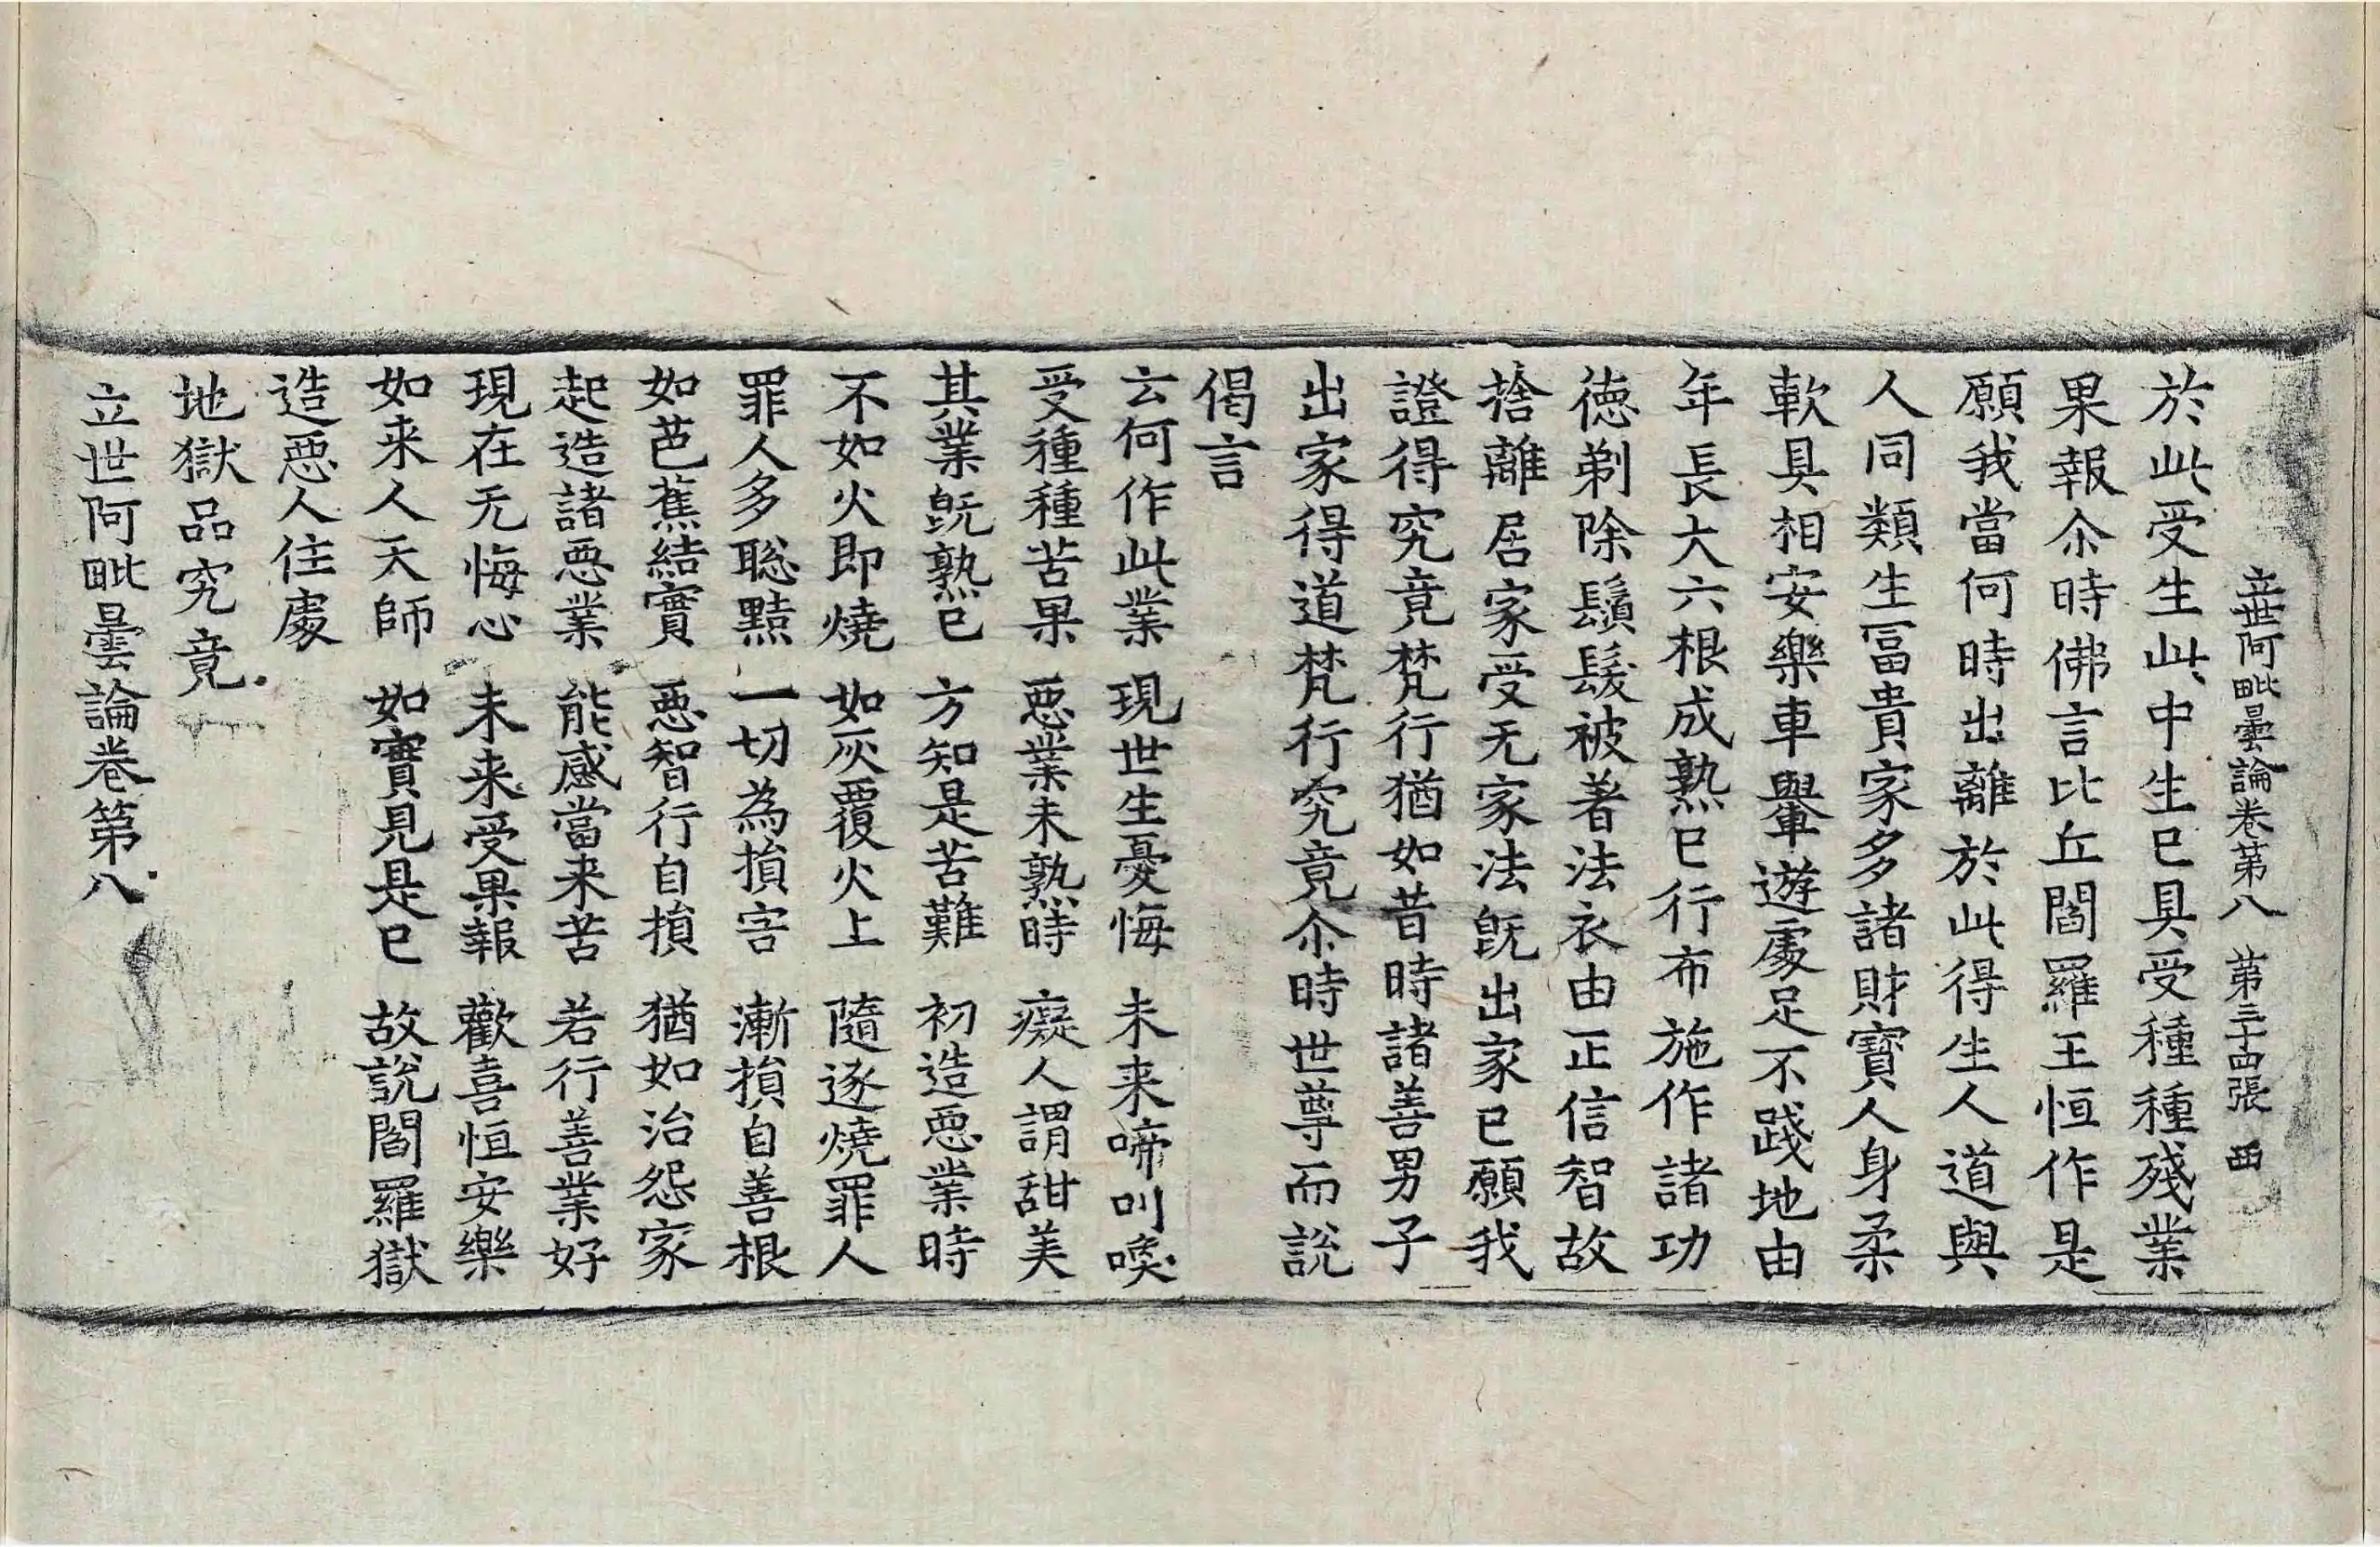 立世阿毗曇論卷第八 第三十四張 西
於此受生此中生已具受種種殘業
果報尒時佛言比丘閻羅王恒作是
願我當何時出離於此得生人道與
人同類生冨貴家多諸財寶人身柔
軟具相安樂車轝遊處足不踐地由
年長大六根成熟已行布施作諸功
徳剃除鬚髮被著法衣由正信智故
捨離居家受无家法旣出家已願我
證得究竟梵行猶如昔時諸善男子
出家得道梵行究竟尒時世尊而說
偈言
云何作此業 現世生憂悔 未来啼叫喚
受種種苦果 惡業未熟時 癡人謂甜美
其業旣熟已 方知是苦難 初造惡業時
不如火即燒 如灰覆火上 隨逐燒罪人
罪人多聡黠 一切為損害 漸損自善根
如芭蕉結實 惡智行自損 猶如治怨家
起造諸惡業 能感當来苦 若行善業好
現在无悔心 未来受果報 歡喜恒安樂
如来人天師 如實見是已 故說閻羅獄
造惡人住處
地獄品究竟
立世阿毗曇論卷第八